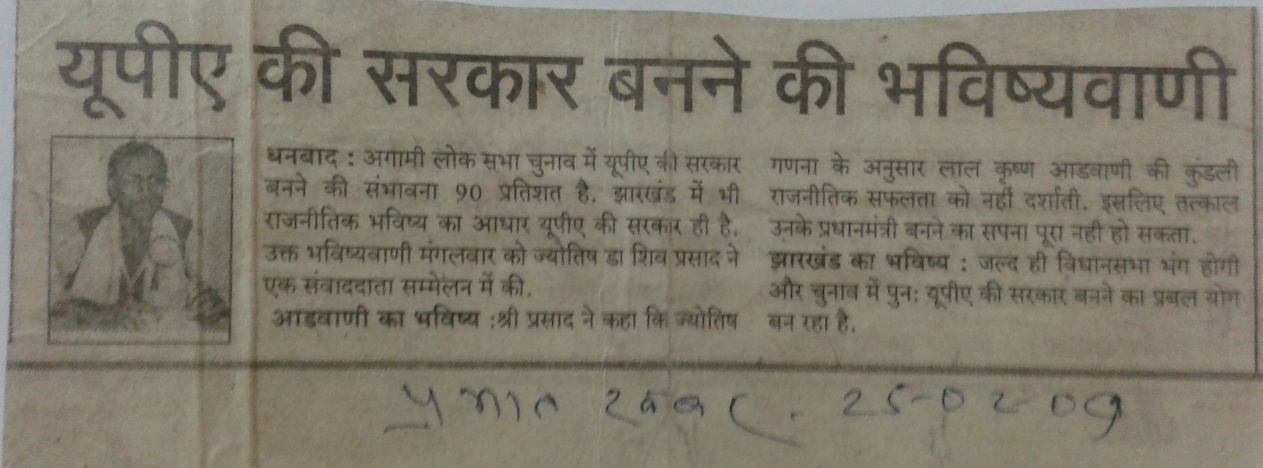 यूपीए की सरकार बनने की भविष्यवाणी
धनबाद : अगामी लोक सभा चुनाव में यूपीए की सरकार
बनने की संभावना 90 प्रतिशत है. झारखंड में भी
राजनीतिक भविष्य का आधार यूपीए की सरकार ही है.
उक्त भविष्यवाणी मंगलवार को ज्योतिष डा शिव प्रसाद ने
एक संवाददाता सम्मेलन में की.
आडवाणी का भविष्य :श्री प्रसाद ने कहा कि ज्योतिष
गणना के अनुसार लाल कृष्ण आडवाणी की कुंडली
राजनीतिक सफलता को नहीं दर्शाती. इसलिए तत्काल
उनके प्रधानमंत्री बनने का सपना पूरा नही हो सकता.
झारखंड का भविष्य : जल्द ही विधानसभा भंग होगी
और चुनाव में पुन: यूपीए की सरकार बनने का प्रबल योग
बन रहा है.
प्रभात खबर. 25-02-09